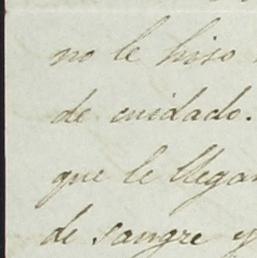 no le hiso
de cuidado.
que le llegan
de sangre y